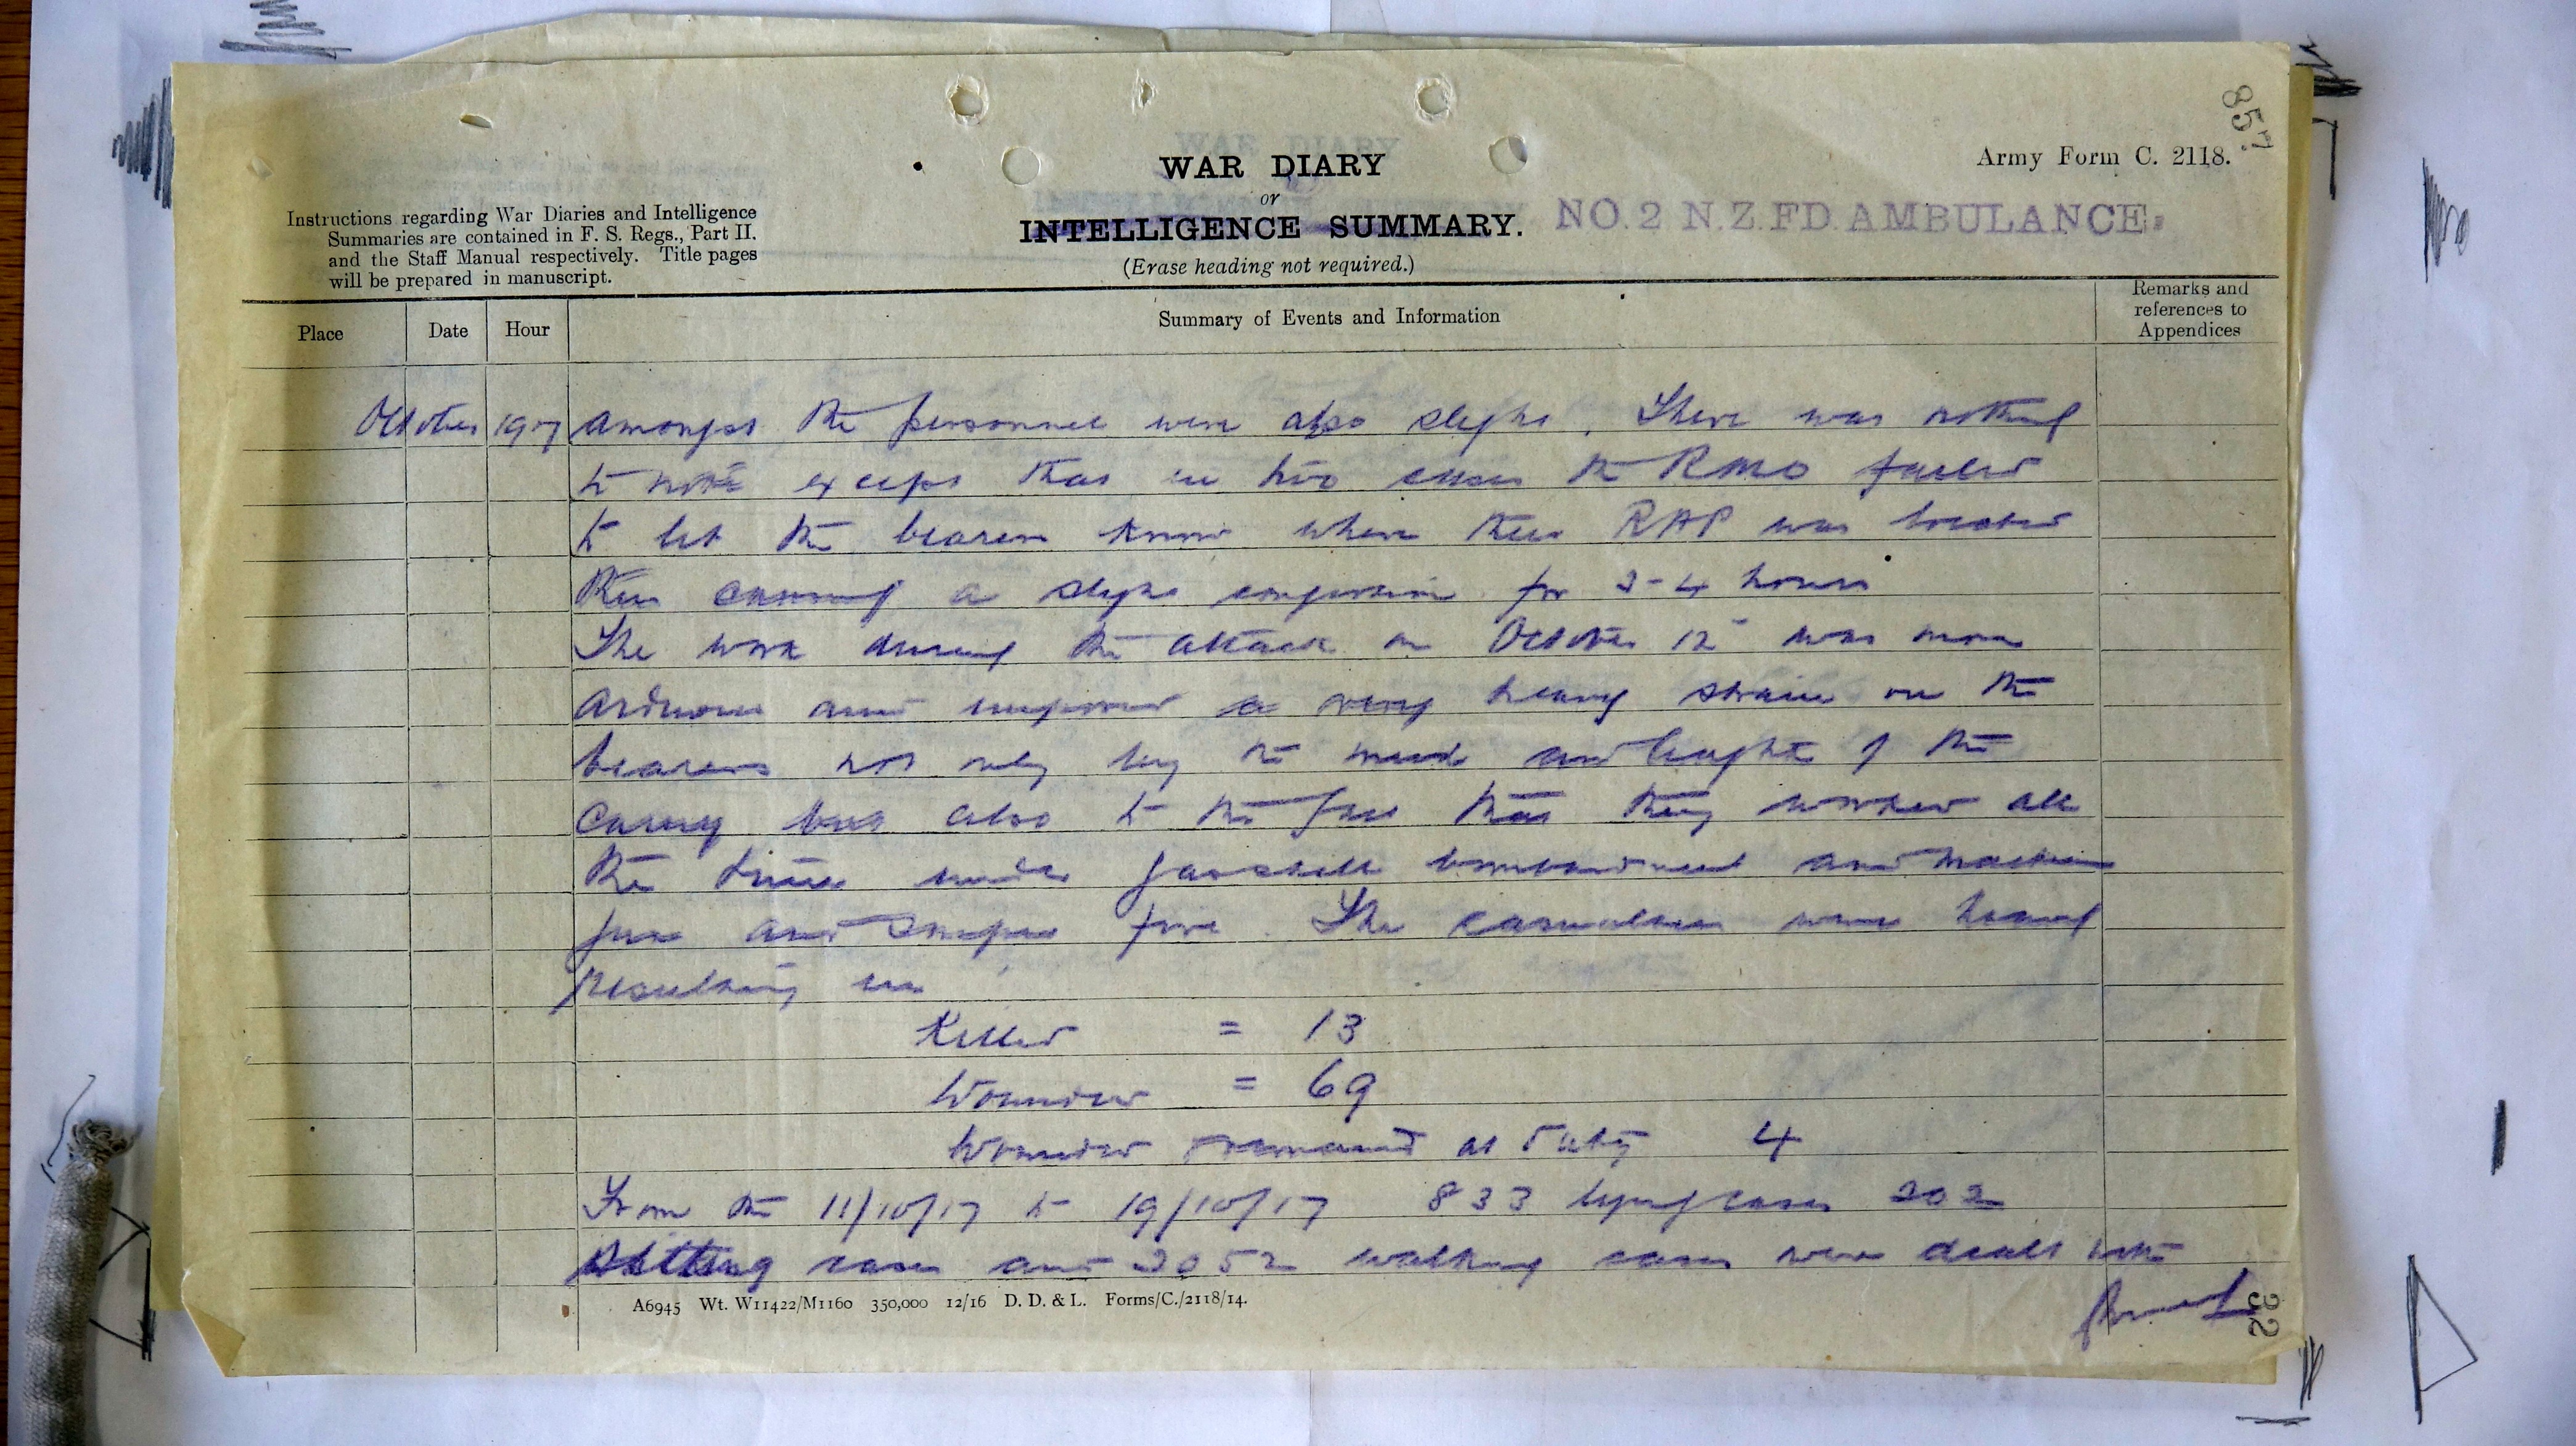 857
Army Form C. 2118.
WAR DIARY
or
INTELLIGENCE SUMMARY.
NO. 2 N.Z. FD. AMBULANCE.
(Erase heading not required.)
Instructions regarding War Diaries and Intelligence
Summaries are contained in F. S. Regs., Part II.
and the Staff Manual respectively. Title pages
will be prepared in manuscript.
Place
Date
Hour
Summary of Events and Information
Remarks and
references to
Appendices
October 1917
amongst the personnel were also slight. There was nothing
to note except that in two cases the RMO failed
to let the bearers know where their RAP was located
thus causing a slight confusion for 3-4 hours
The work during the attack on October 12 was more
arduous and imposed a very heavy strain on the
bearers not only by the mud and lenght of the
carry but also to the fact that they worked all
the time under gasshell bombardment and machine
gun and sniper fire. The casualties were heavy
resulting in
Killed = 13
Wounded = 69
Wounded remained at duty 4
From the 11/10/17 to 19/10/17 833 lying cases 202
sitting cases and 2052 walking cases were dealt with
A6945 Wt. W11422/M1160 350,000 12/16 D. D. & L. Forms/C./2118/14.
32